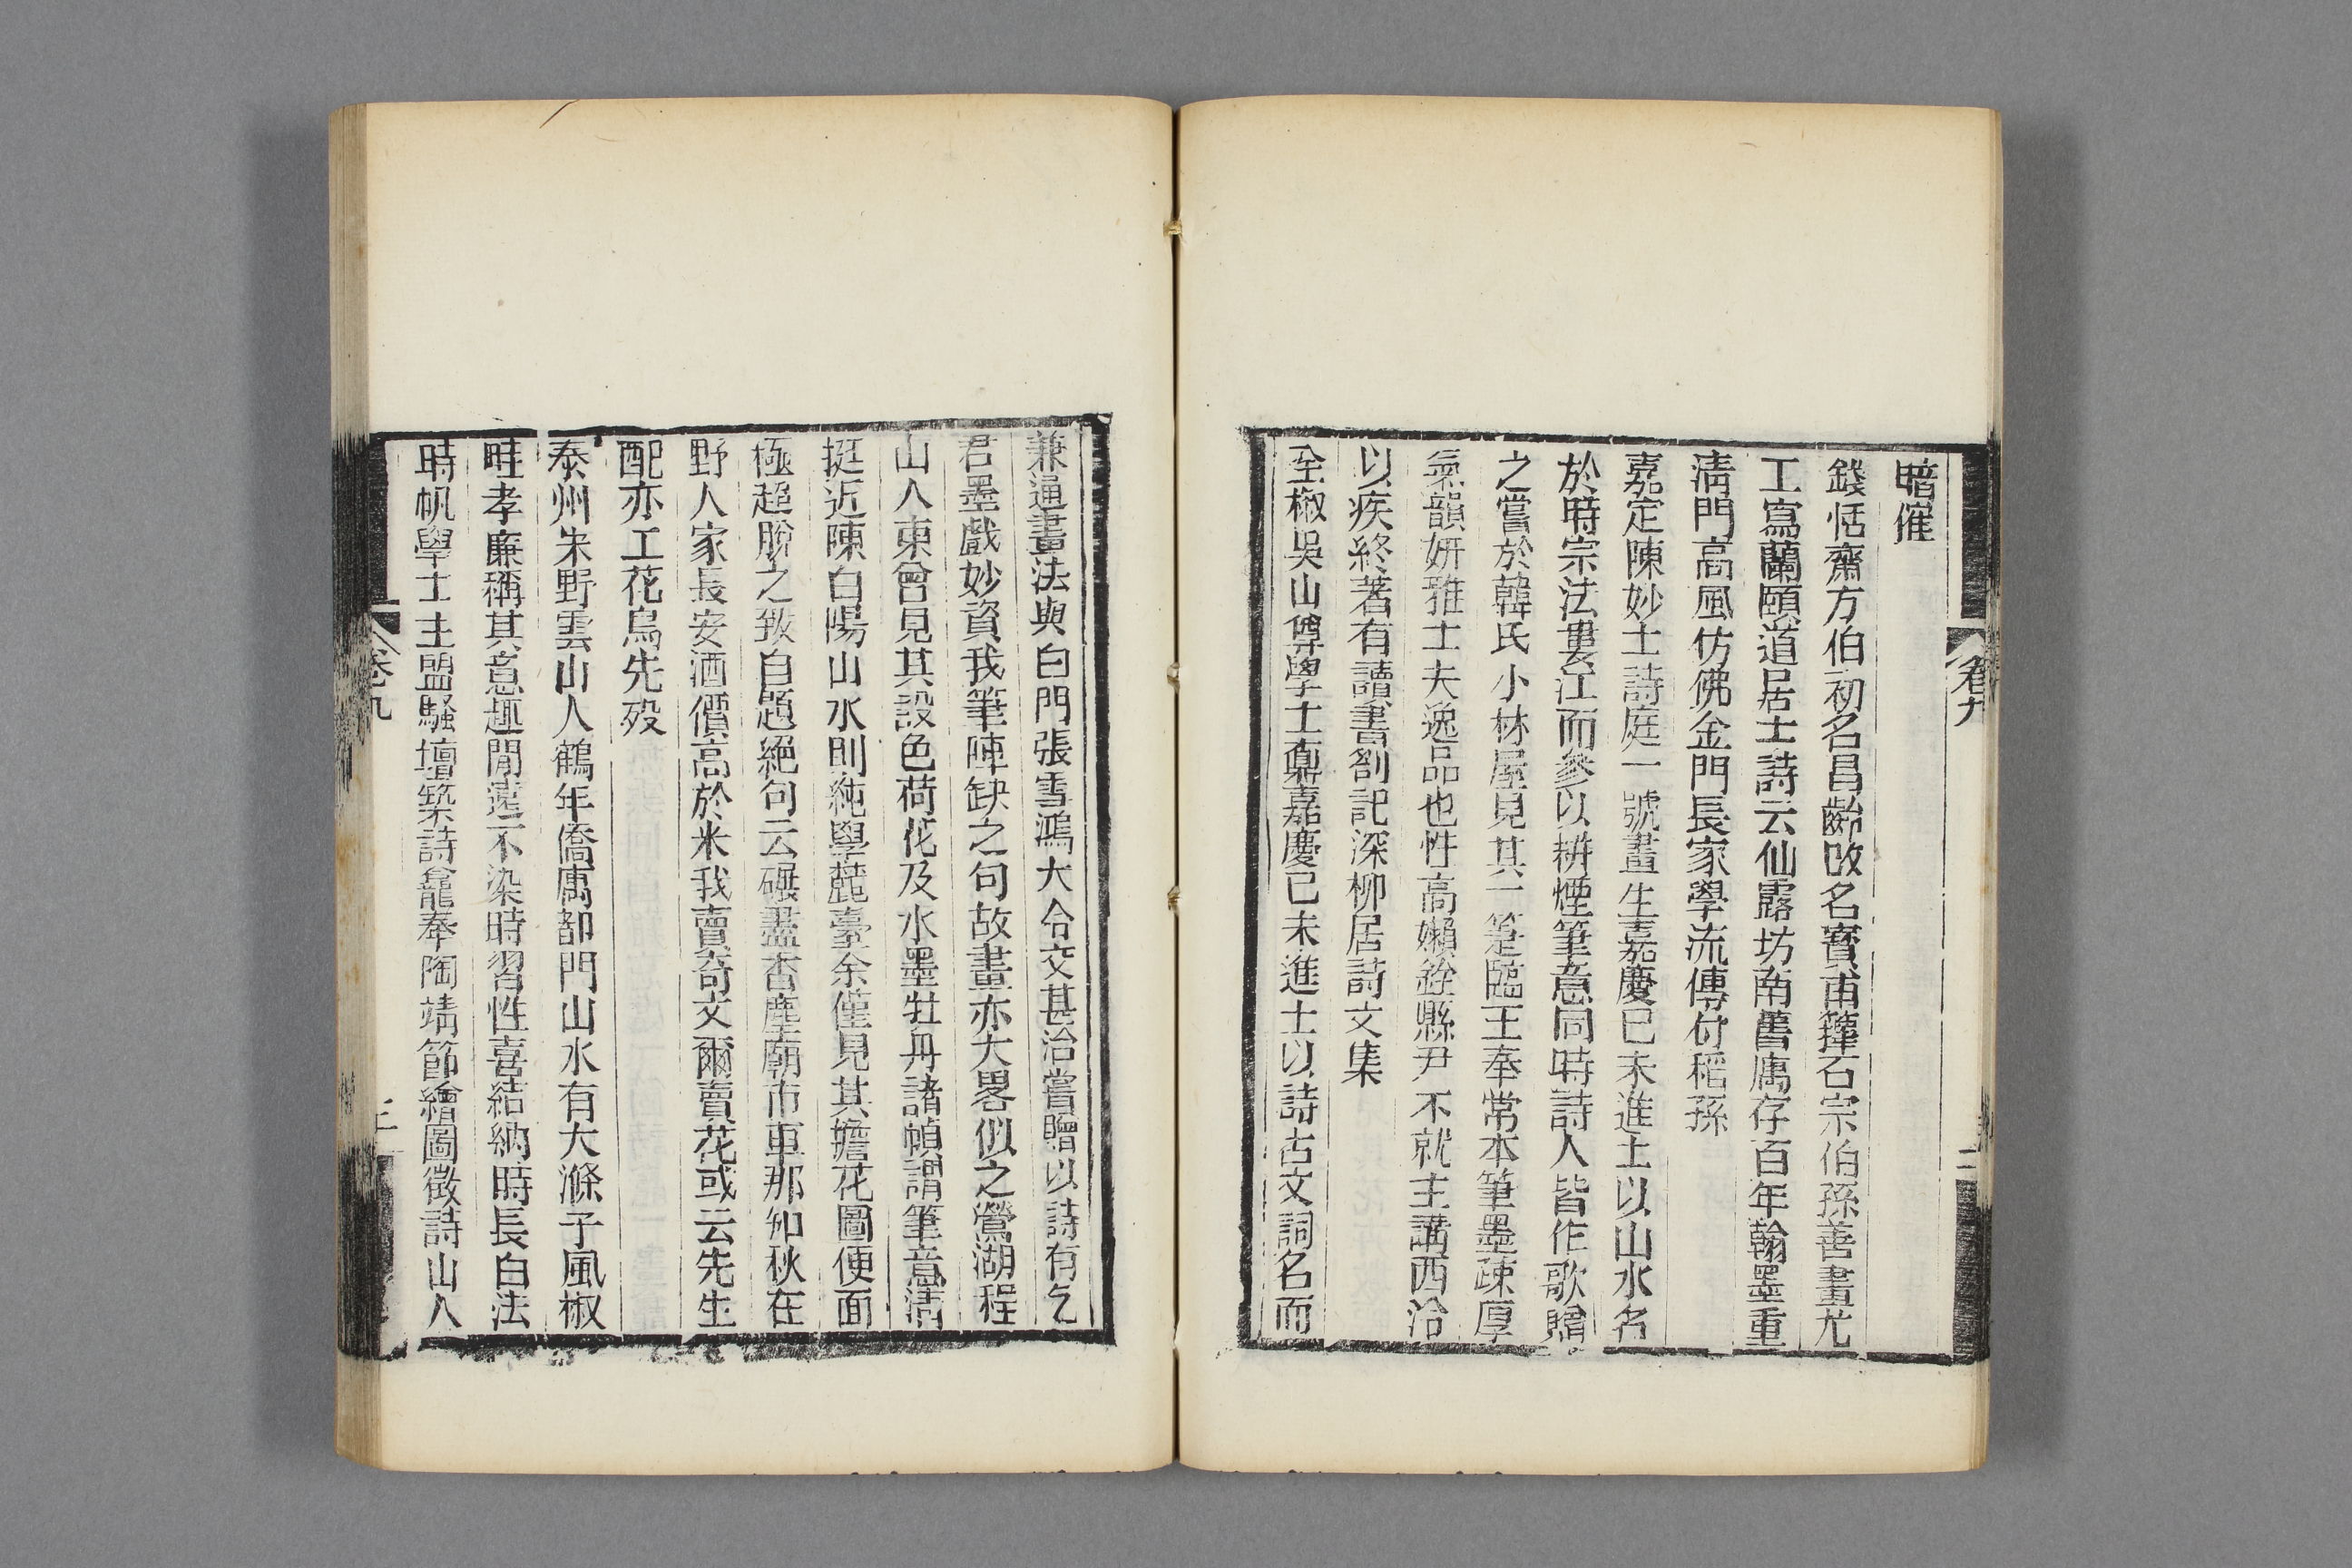 暗催
錢恬齋方伯初名昌齡改名寶甫籜石宗伯孫善畫尤
工寫蘭頤道居士詩云仙露坊南舊寓存百年翰墨重
淸門高風仿佛金門長家學流傳付稻孫
嘉定陳妙士詩庭一號畫生嘉慶已未進士以山水名
於時宗法婁江而參以耕煙筆意同時詩人皆作歌贈
之嘗於韓氏小林屋見其一箑臨王奉常本筆墨疎厚
氣韻妍雅士夫逸品也性高嬾銓縣尹不就主講西洽
以疾終著有讀書劄記深柳居詩文集
全椒吳山尊學士鼒嘉慶已未進士以詩古文詞名而
卷九
二
兼通畫法與白門張雪鴻大令交甚洽嘗贈以詩有乞
君墨戲妙資我筆陣缺之句故畫亦大畧似之鶯湖程
山人東曾見其設色荷花及水墨牡丹諸幀謂筆意淸
挺近陳白陽山水則純學麓臺余僅見其擔花圖便面
極超脫之致自題絕句云碾盡香塵廟市車那知秋在
野人家長安酒價高於米我賣奇文爾賣花或云先生
配亦工花鳥先殁
泰州朱野雲山人鶴年僑寓都門山水有大滌子風椒
畦孝廉稱其意趣閒遠不染時習性喜結納時長白法
時帆學士主盟騷壇築詩龕奉陶靖節繪圖徵詩山人
卷九